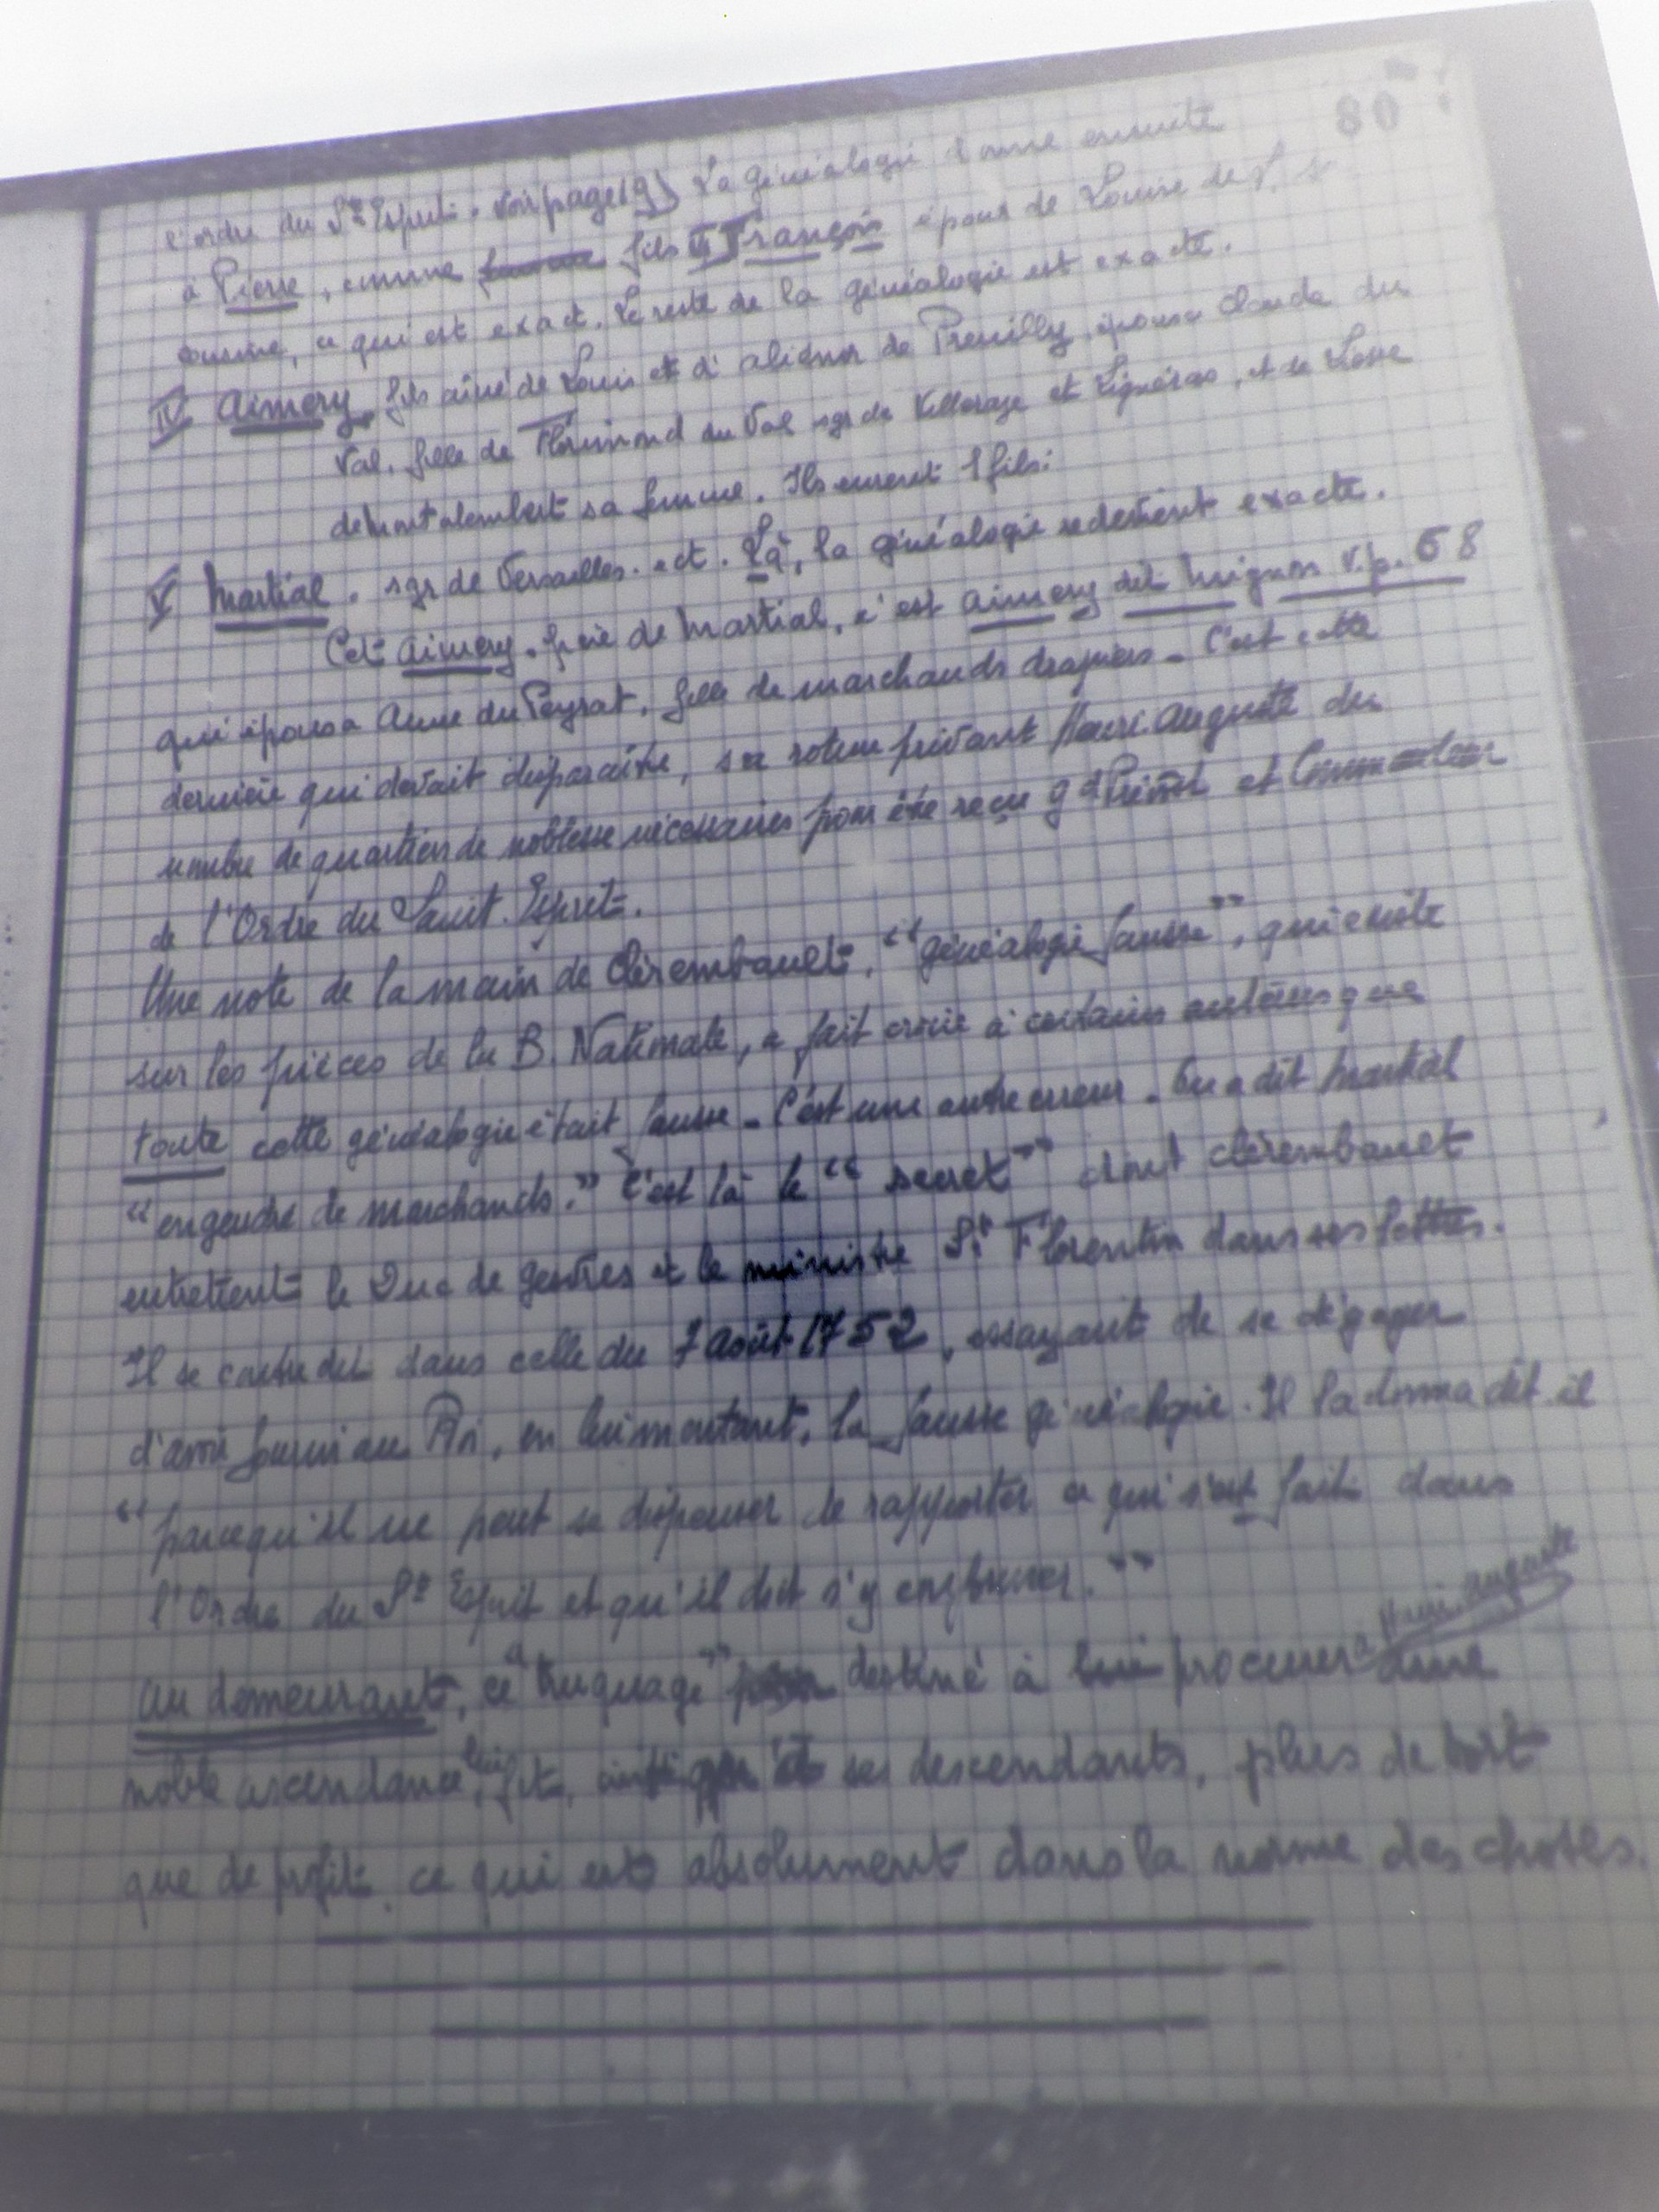 80
l'ordre du St Esprit. Voir page 19) La généalogie donne ensuite
à Pierre, comme fils III François époux de Louise de
cousine, ce qui est exact. Le reste de la généalogie est exacte.
IV Aimery, fils aîné de Louis et d'Aliénor de Preuilly, épousa Claude du
Val, fille de Florimond du Val sgr de Villeraze et Lignéras, et de Losse
de Montalembert sa femme. Ils eurent 1 fils:
V Martial. sgr de Versailles. ect. Là, la généalogie redevient exacte.
Cet Aimery, père de Martial, c'est Aimery dit Mignon V.p. 68
qui épousa Anne du Peyrat, fille de marchands drapiers. C'est cette
dernière qui devait disparaître, sa roture privant Henri. Auguste du
nombre de quartiers de noblesse nécessaires pour être reçu gd Prévôt et Commandeur
de l'Ordre du Saint. Esprit.
Une note de la main de Clérembault, "généalogie fausse", qui existe
sur les pièces de la B. Nationale, a fait croire à certains auteurs que
toute cette généalogie était fausse. C'est une autre erreur. On a dit Martial
"engendré de marchands." C'est là le "secret" dont Clérembault
entretient le Duc de Gesvres et le ministre St Florentin dans ses lettres.
Il se contredit dans celle du 7 Août 1752, essayant de se dégager
d'avoir fourni au Roi, en lui montant, la fausse généalogie. Il la donna dit-il
"parcequ'il ne peut se dispenser de rapporter ce qui s'est fait dans
l'Ordre du St Esprit et qu'il doit s'y conformer."
Au demeurant, ce "truquage" destiné à procurer à Henri. Auguste une
noble ascendance, lui fit, ses descendants, plus de tort
que de profit, ce qui est absolument dans la norme des choses.